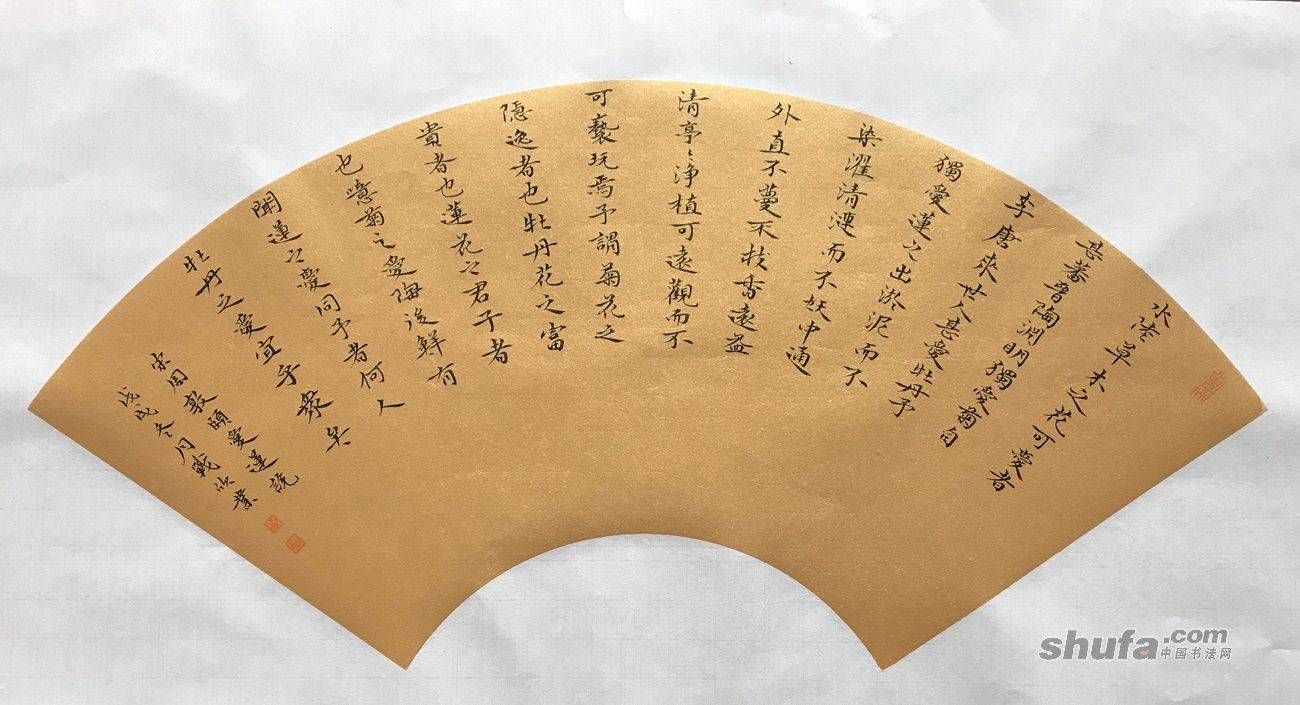 水陸草木之花可愛者
甚蕃晉陶淵明獨愛菊自
李唐來世人甚愛牡丹予
獨愛蓮之出淤泥而不
染濯清漣而不妖中通
外直不蔓不枝香遠益
清亭〻淨植可遠觀而不
可褻玩焉予謂菊花之
隱逸者也牡丹花之富
貴者也蓮花之君子者
也噫菊之愛陶後鮮有
聞蓮之愛同予者何人
牡丹之愛宜乎衆矣
宋周敦頤愛蓮說
戊戌冬月戰欣業
shufa.com
中国书法网